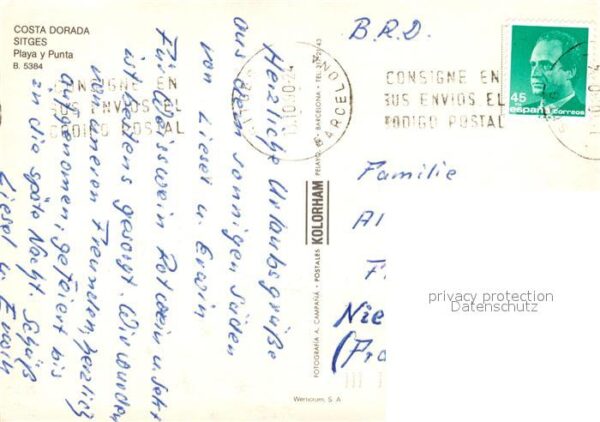 COSTA DORADA
SITGES
Playa y Punta
B. 5384
B.R.D.
CONSIGNE EN
SUS ENVIOS EL
CODIGO POSTAL
BARCELONA
CONSIGNE EN
SUS ENVIOS EL
CODIGO POSTAL
45
españa correos
Herzliche Urlaubsgrüße
aus dem sonnigen Süden
von Liesel u. Erwin
Für Weisswein Rotwein u. Sekt
ist bestens gesorgt. Wir wurden
von unseren Freunden, herzlich
aufgenommen, gefeiert bis
in die späte Nacht.
Liesel u. Erwin
FOTOGRAFIA A. CAMPAÑA - POSTALES KOLORHAM PELAYO, - BARCELONA - TEL.
Familie
Al
F
Nie
privacy protection
Datenschutz
S. A.